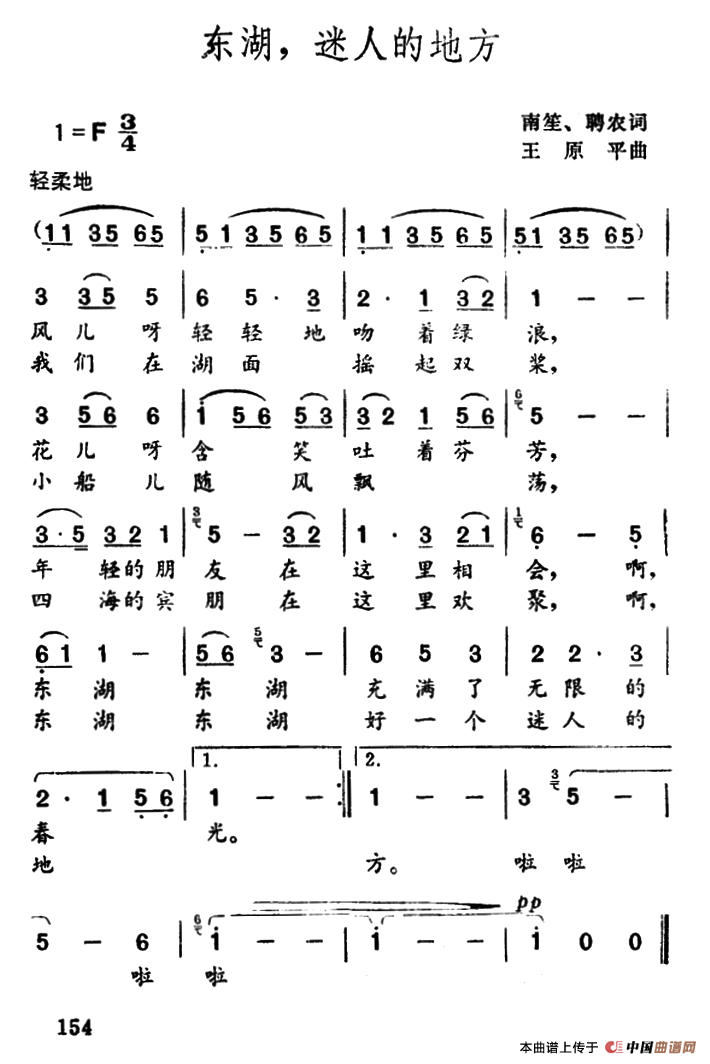 东湖，迷人的地方
1=F 3/4
南笙、聘农词
王原平曲
轻柔地
(11 35 65 | 51 35 65 | 11 35 65 | 51 35 65)
3 35 5 | 6 5· 3 | 2· 1 32 | 1 — — |
风儿呀轻轻地吻着绿浪，
我们在湖面摇起双桨，
3 56 6 | i 56 53 | 32 1 56 | 6 5 — — |
花儿呀含笑吐着芬芳，
小船儿随风飘荡，
3·5 32 1 | 3 5 — 32 | 1· 3 21 | 1 6 — 5 |
年轻的朋友在这里相会，啊，
四海的宾朋在这里欢聚，啊，
61 1 — | 56 5 3 — | 6 5 3 | 2 2· 3 |
东湖东湖充满了无限的
东湖东湖好一个迷人的
1. 2.
2· 1 56 | 1 — — :| 1 — — | 3 3 5 — |
春光。
地方。啦啦
pp
5 — 6 | 6 i — — | i — — | i 0 0 ‖
啦啦
154
本曲谱上传于 中国曲谱网